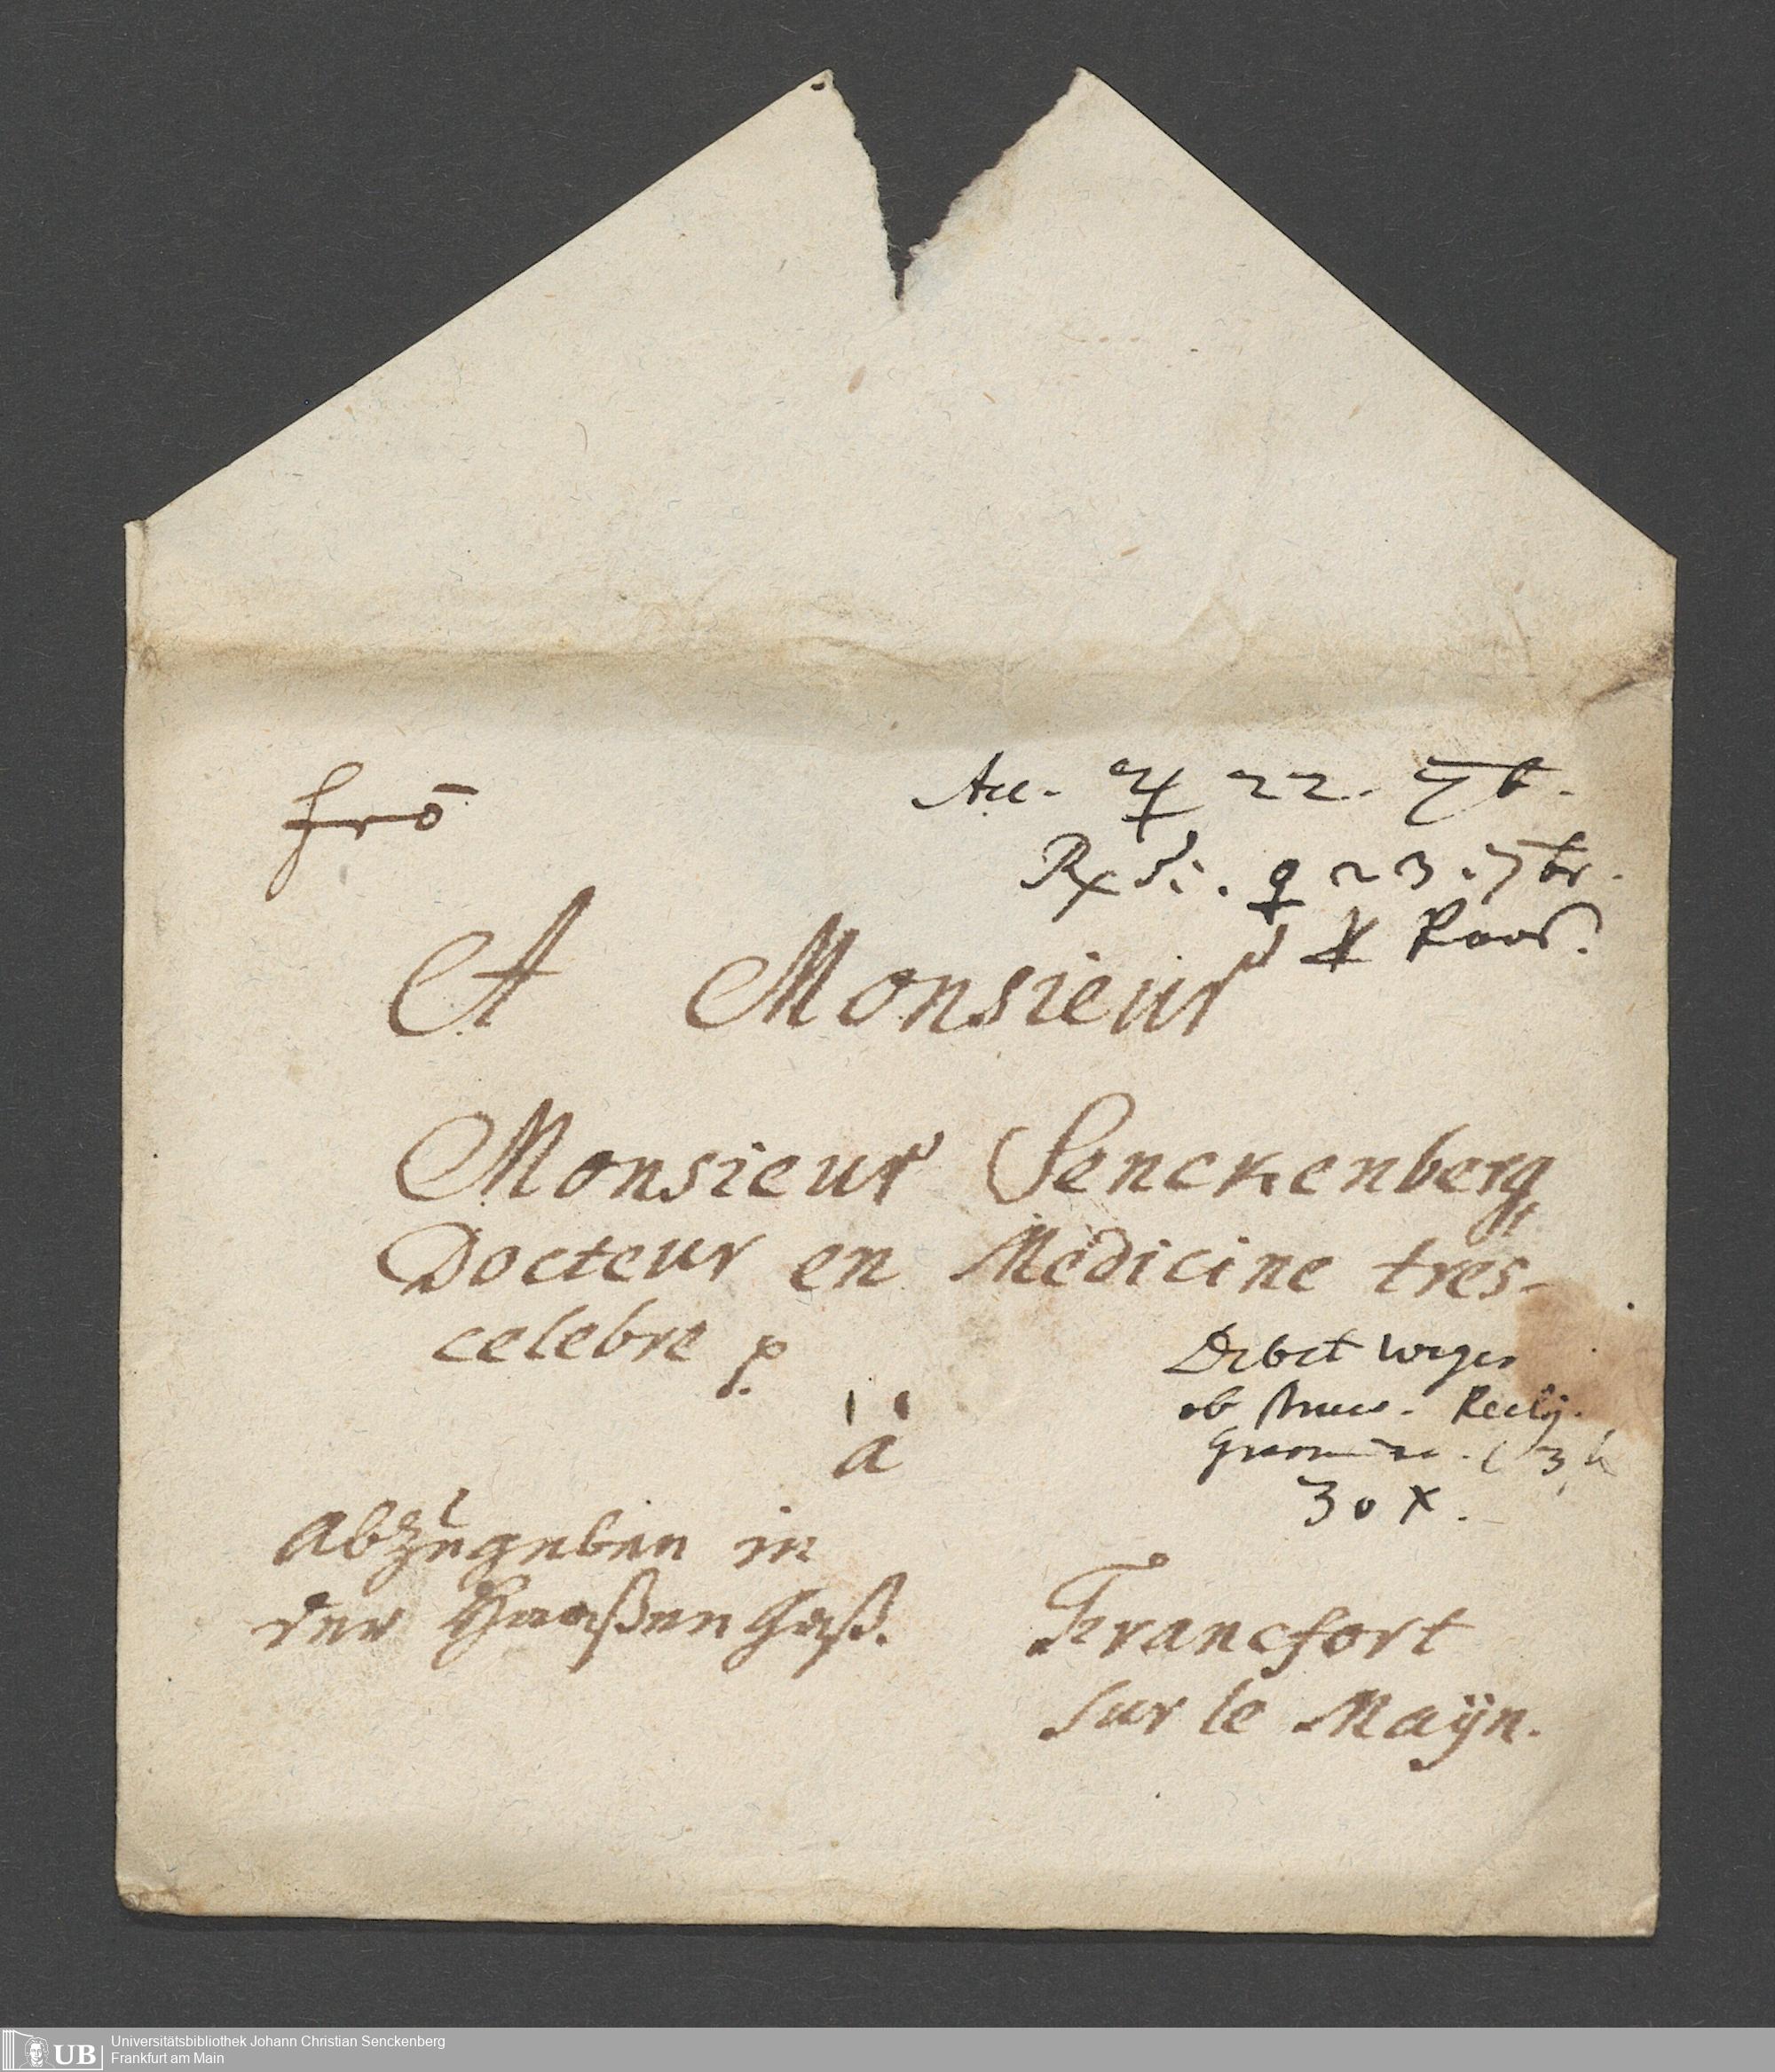 frō
Acc. ♃ 22. 7b.
Rx di. ♀ 23. 7br.
A Monsieur
Monsieur Senckenberg
Docteur en Medicine tres-
celebre p.
Debet wegen
ob
à
30 x.
Abzugeben in
der Haaßen Gaß.
Francfort
sur le Maÿn.
UB
Universitätsbibliothek Johann Christian Senckenberg
Frankfurt am Main